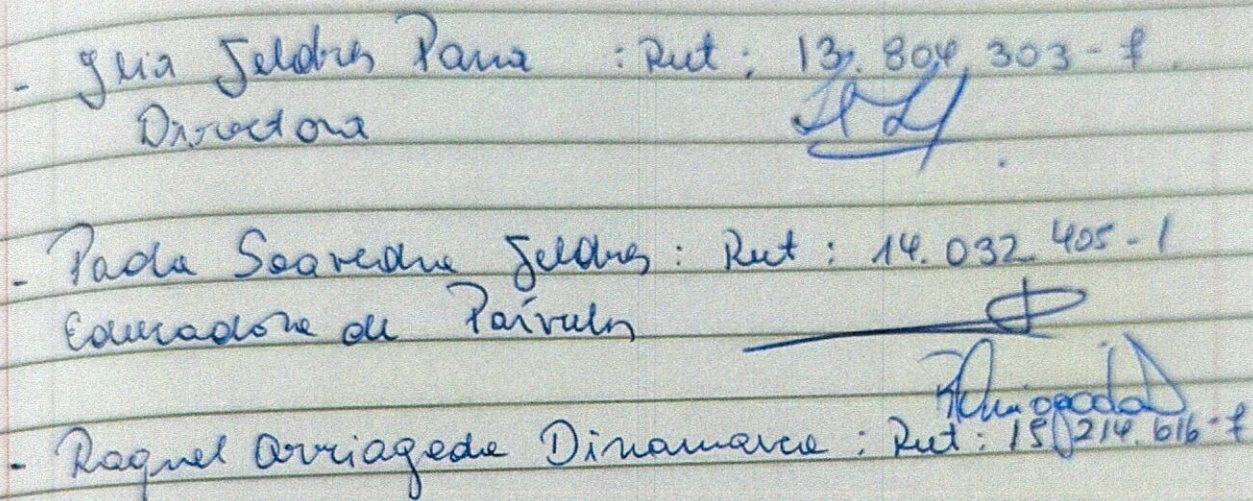 - Jeldres Parra : Rut : 13.804.303-7.
Directora
- Paola Saavedra Jeldres : Rut : 14.032.405-1
Educadora de Párvulos
- Raquel Arriagada Dinamarca : Rut : 15.214.616-7